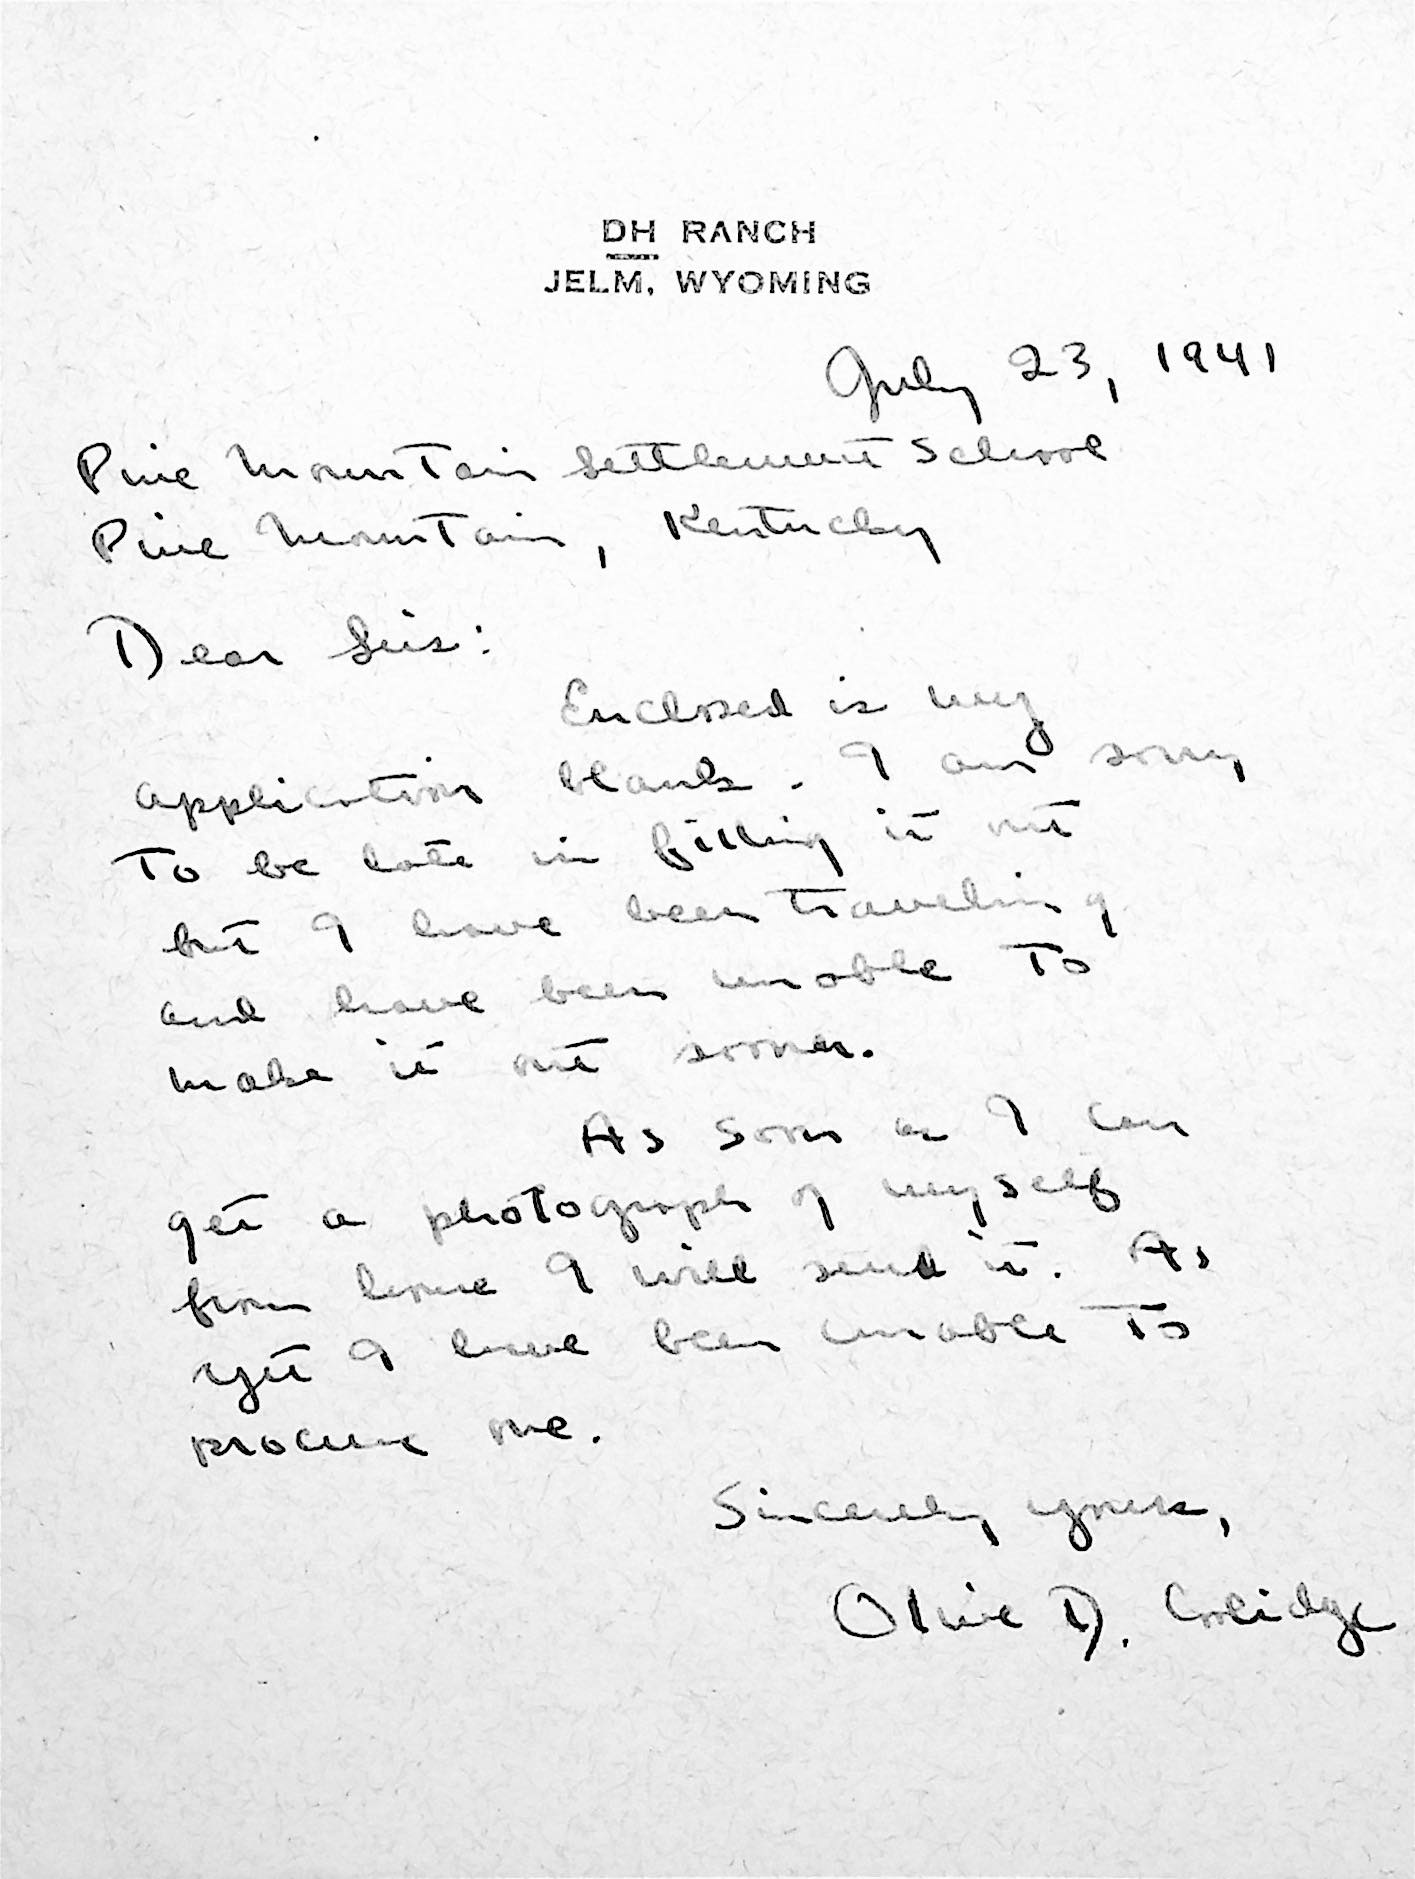 DH RANCH
JELM, WYOMING
July 23, 1941
Pine Mountain Settlement School
Pine Mountain, Kentucky
Dear Sirs:
Enclosed is my
application blank. I am sorry
to be late in filling it out
but I have been traveling
and have been unable to
make it out sooner.
As soon as I can
get a photograph of myself
from home I will send it. As
yet I have been unable to
procure one.
Sincerely yours,
Olive D. Coolidge